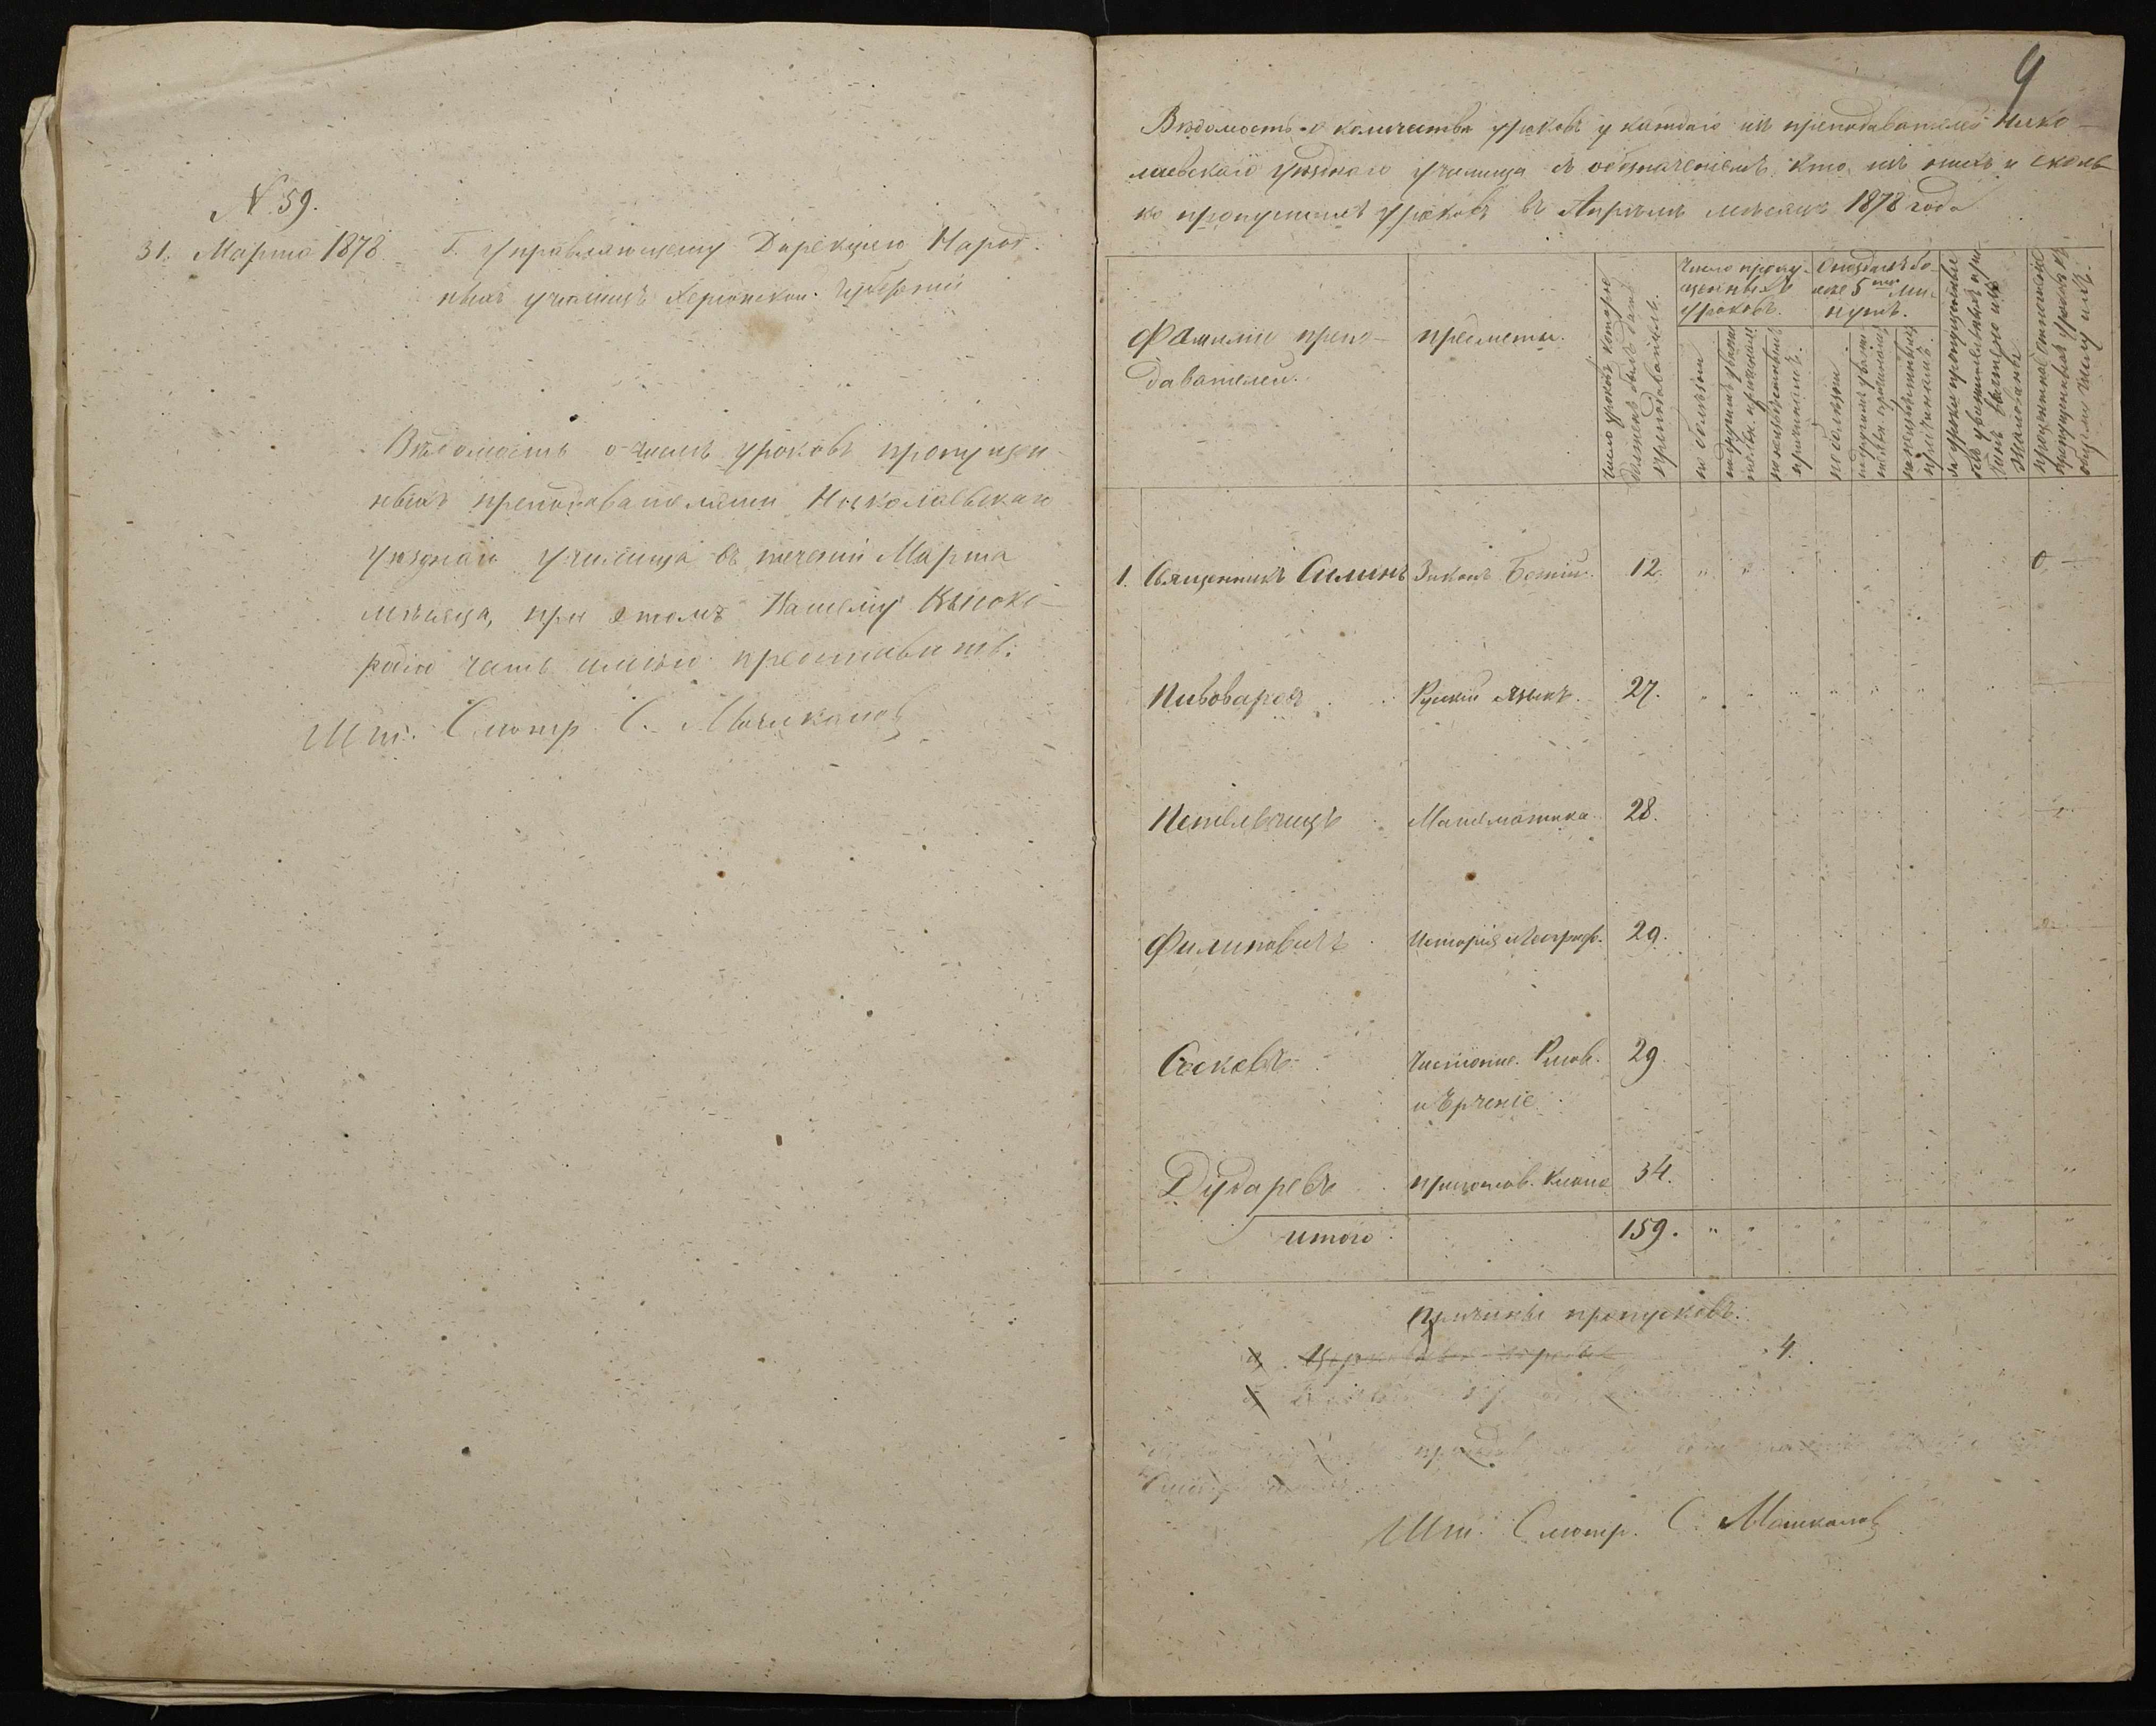 № 59.
31. Марта 1878
Г. Управляющему Дирекціею Народ-
ныхъ училищъ Херсонской Губерніи
Вѣдомость о числѣ уроковъ пропущен-
ныхъ преподавателями Николаевскаго
уѣзднаго училища въ теченіи Марта
мѣсяца, при этомъ Вашему Высоко-
родію честь имѣю представить.
Шт. Смотр. С.
9
Вѣдомость о количествѣ уроковъ у каждаго изъ преподавателей Нико-
лаевскаго уѣзднаго училища съ обозначеніемъ, кто изъ нихъ и сколь-
ко пропустилъ уроковъ въ Апрѣлѣ мѣсяцѣ 1878 года
Фамиліи препо-
давателей.
предметы.
Число уроковъ которое
долженъ былъ дать
преподаватель.
Число пропу-
щенныхъ
уроковъ.
по болѣзни
по другимъ уважи-
тельн. причинамъ
по неизвѣстнымъ
причинамъ.
Опоздалъ бо-
лѣе 5 ти ми-
нутъ.
по болѣзни
по другимъ уважи-
тельн. причинамъ
по неизвѣстнымъ
причинамъ.
За уроки пропущенные
безъ уважительныхъ при-
чинъ вычтено изъ
жалованья
процентное отношеніе
пропущенныхъ уроковъ къ
общему числу ихъ.
1. Священникъ Силинъ Законъ Божій. 12. " " 0
Пивоваровъ Русскій языкъ. 27.
Математика 28.
Филиповичъ Исторія и Географ. 29.
Сосковъ Чистопис. Рисов. 29
и Черченіе
Дударевъ приготов. классъ 34.
итого 159. " "
Причины пропусковъ:
а) 4.
б)
Шт. Смотр. С.